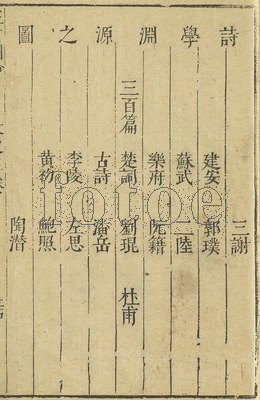 詩學淵源之圖
三謝
建安 郭璞
蘇武 二陸
樂府 阮籍
三百篇 楚詞 劉琨 杜甫
古詩 潘岳
李陵 左思
黃初 鮑照
陶潛
fotoe